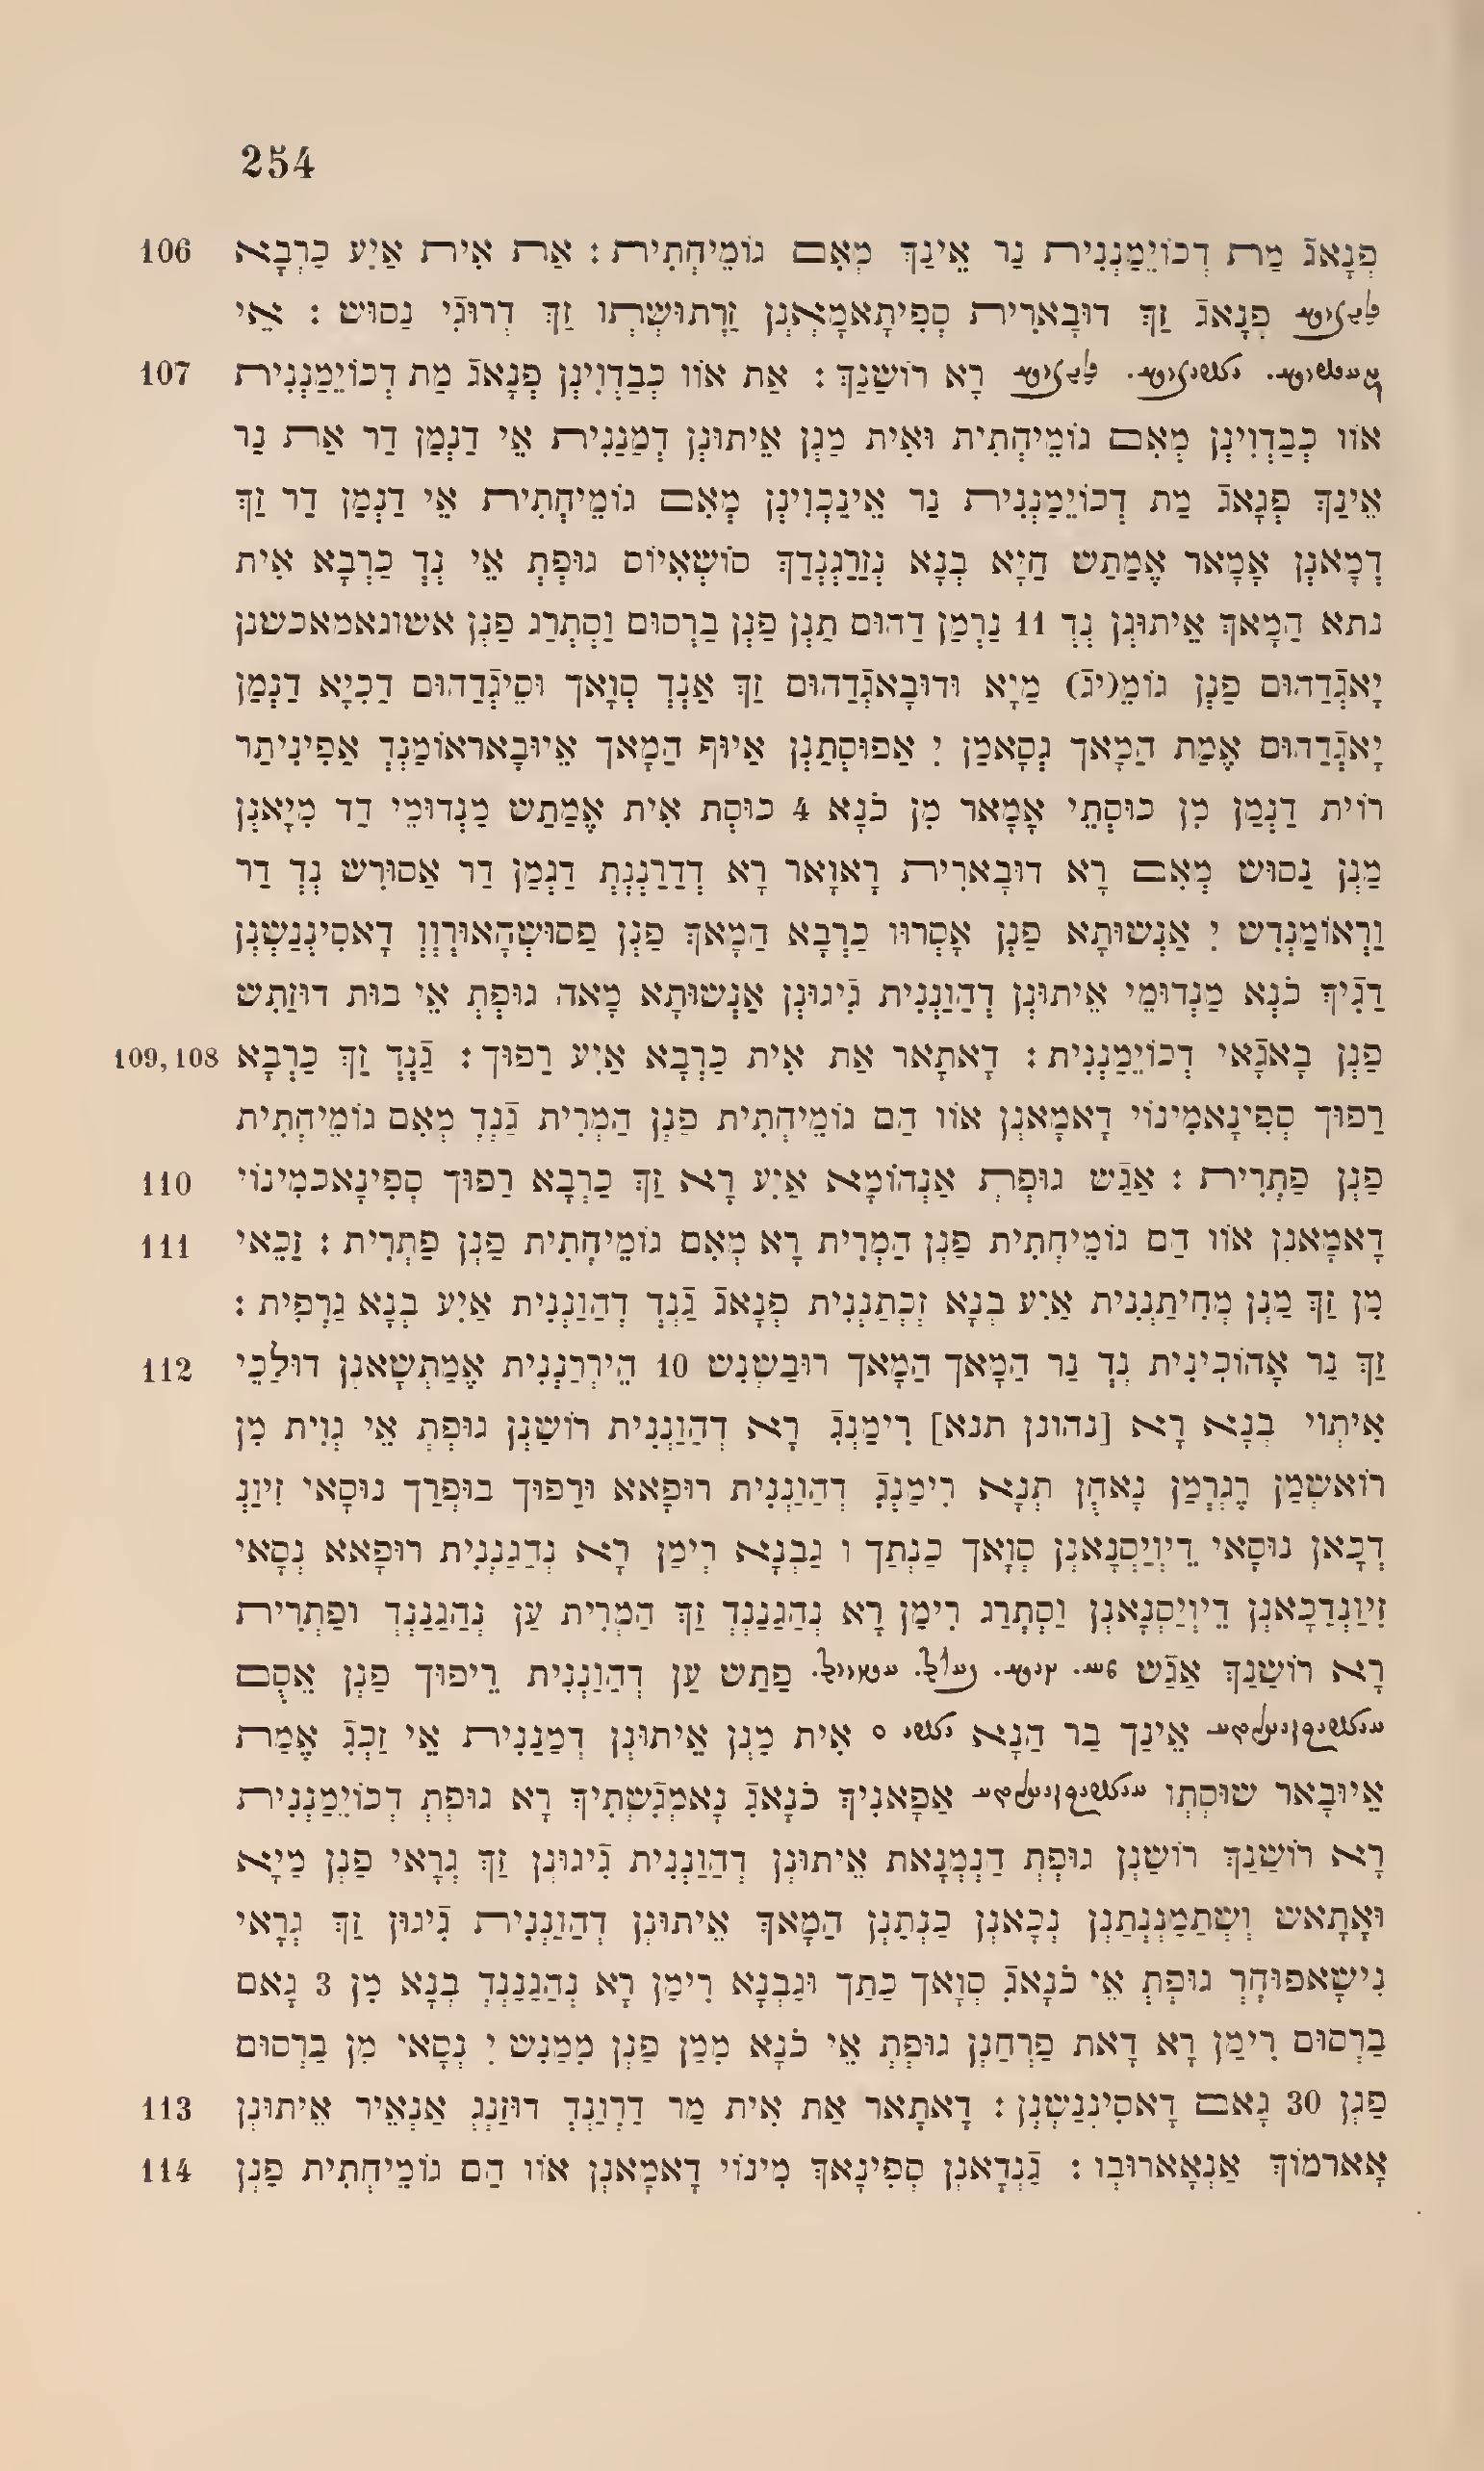 254
106 פְנָאגֿ מַת דְכוֹיֵמַנְנִית נַר אֵינַךְ מְאִם גוֹמֵיהְתִית : אַת אִית אַיִע כַרְבָא
פְנָאגֿ זַךְ דוּבָארִית סְפִיתָאמָאְנְן זַרְתוּשְתוֹ זַךְ דְרוּגִֿי נַסוּש : אֵי
107 רָא רוֹשַנַךְ : אַת אוֹו כְבַדְוִינְן פְנָאגֿ מַת דְכוֹיֵמַנְנִית
אוֹו כְבַדְוִינְן מְאִם גוֹמֵיהְתִית וּאִית מַנְן אֵיתוּנְן דְמַנַנִית אֵי דַנְמַן דַר אַת נַר
אֵינַךְ פְנָאגֿ מַת דְכוֹיֵמַנְנִית נַר אֵינַכְוִינְן מְאִם גוֹמֵיחְתִית אֵי דַנְמַן דַר זַךְ
דְמָאנְן אָמָאר אֶמַתַש חַיָא בְנָא נְזַרַגְנְדַךְ סוֹשְאִיוֹס גוּפְתְ אֵי נְדְ כַרְבָא אִית
נתא הַמָאךְ אֵיתוּנְן נְדְ 11 נַרְמַן דַהוּם תַנְן פַנְן בַרְסוּם וַסְתְרַג פַנְן אשוגאמאכשנן
יָאגְֿדַהוּם פַנְן גוֹמֵ(יגֿ) מַיָא וּדוּבָאגְֿדַהוּם זַךְ אַנְדְ סְוָאךְ וּסֵיגְֿדַהוּם דַכִיָא דַנְמַן
יָאגְֿדַהוּם אֶמַת הַמָאךְ נְסָאמַן יִ אַפוּסְתַנְן אַיוּף הַמָאךְ אֵיוּבָאראוֹמַנְדְ אַפִינִיתַר
רוֹית דַנְמַן מִן כוּסְתֵי אָמָאר מִן כֿנָא 4 כוּסְת אִית אֶמַתַש מַנְדוּמֵי דַד מִיָאנְן
מַנְן נַסוּש מְאִם רָא דוּבָארִית רָאוָאר רָא דְדַרַנְנְתְ דַנְמַן דַר אַסוּרִש נְדְ דַר
וַרְאוֹמַנְדִש יִ אַנְשוּתָא פַנְן אָסְרוּו כַרְבָא הַמָאךְ פַנְן פַסוּשְהָאוּרְוְוְ דָאסִינְנַשְנְן
דַגִֿיךְ כֿנְא מַנְדוּמֵי אֵיתוּנְן דְהַוַנְנִית גִֿיגוּנְן אַנְשוּתָא מָאה גוּפְתְ אֵי בוּת דוּזַתִש
109, 108 פַנְן בָאגָֿאי דְכוֹיֵמַנְנִית : דָאתָאר אַת אִית כַרְבָא אַיִע רַפוּךְ : גַֿנְדְ זַךְ כַרְבָא
רַפוּךְ סְפִינָאמִינוֹי דָאמָאנְן אוֹו הַם גוֹמֵיהְתִית פַנְן הַמְרִית גַֿנְדְ מְאִם גוֹמֵיהְתִית
110 פַנְן פַתְרִית : אַגַֿש גוּפְתְ אַנְהוֹמָא אַיִע רָא זַךְ כַרְבָא רַפוּךְ סְפִינָאכמִינוֹי
111 דָאמָאנְן אוֹו הַם גוֹמֵיחְתִית פַנְן הַמְרִית רָא מְאִם גוֹמֵיחְתִית פַנְן פַתְרִית : זַכֵאי
מִן זַךְ מַנְן מְחִיתַנְנִית אַיִע בְנָא זְכְתַנְנִית פְנָאגֿ גַֿנְדְ דְהַוַנְנִית אַיִע בְנָא גַרְפִית :
112 זַךְ נַר אָהוֹכִינִית נְדְ נַר הַמָאךְ הַמָאךְ רוּבַשְנִש 10 הֵירְרַנְנִית אֶמַתְשָאנְן דוּלַכֵי
אִיתְוי בְנָא רָא [נהונן תנא] רִימַנְגֿ רָא דְהַוַנְנִית רוֹשַנְן גוּפְתְ אֵי גְוִית מִן
רוֹאשְמַן רְגְרְמַן נָאחְן תְנָא רִימַנְגֿ דְהַוַנְנִית רוּפָאא וּרַפוּךְ בוּפְרַךְ נוּסָאי זִיוַנְ
דְכָאן נוּסָאי דֵיוְיַסְנָאנְן סְוָאךְ כַנְתַךְ ו גַבְנָא רְימַן רָא נְדַגַנְנִית רוּפָאא נְסָאי
זִיוַנְדַכָאנְן דֵיוְיַסְנָאנְן וַסְתְרַג רִימַן רָא נְהַגַנַנְדְ זַךְ הַמְרִית עַן נְהַגַנַנְדְ וּפַתְרִית
רָא רוֹשַנַךְ אַגַֿש פַתַש עַן דְהַוַנְנִית רֵיפוּךְ פַנְן אֵסְם
אֵינַךְ בַר הַנָא ס אִית מַנְן אֵיתוּנְן דְמַנַנִית אֵי זַכְגֿ אֶמַת
אֵיוּבָאר שוּסְתְו אַפָאנִיךְ כֿנָאגֿ נָאמְגַֿשְתִיךְ רָא גוּפְתְ דְכוֹיֵמַנְנִית
רָא רוֹשַנַךְ רוֹשַנְן גוּפְתְ דַנְמְנָאת אֵיתוּנְן דְהַוַנְנִית גִֿיגוּנְן זַךְ גְרָאי פַנְן מַיָא
וּאָתָאש וְשְתַמַנְנְתַנְן נְכָאנְן כַנְתַנְן הַמָאךְ אֵיתוּנְן דְהַוַנְנִית גִֿיגוּן זַךְ גְרָאי
נִישָאפוּהְרְ גוּפְתְ אֵי כֿנָאגֿ סְוָאךְ כַתַךְ וּגַבְנָא רִימַן רָא נְהַגַנַנְדְ בְנָא מִן 3 גָאם
בַרְסוּם רִימַן רָא דָאת פַרְחַנְן גוּפְתְ אֵי כֿנָא מִמַן פַנְן מִמַנִש יִ נְסָאי מִן בַרְסוּם
113 פַנְן 30 גָאם דָאסִינְנַשְנְן : דָאתָאר אַת אִית מַר דַרְוַנְדְ דוּזַנְגְ אַנְאֵיר אֵיתוּנְן
114 אָארמוֹךְ אַנְאָארוּבְו : גַֿנְדָאנְן סְפִינָאךְ מִינוֹי דָאמָאנְן אוֹו הַם גוֹמֵיחְתִית פַנְן